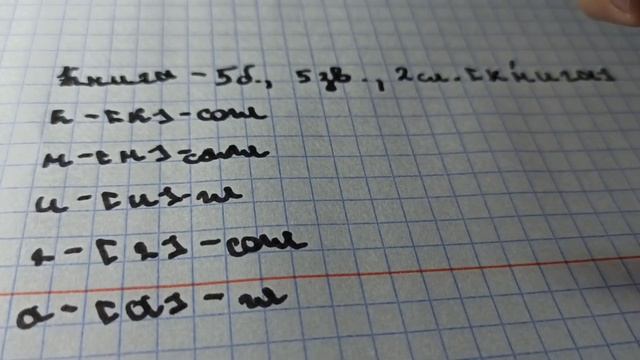 Книга - 5б., 5 зв., 2 сл. [к'нига]
к - [к] - согл
н - [н] - согл
и - [и] - гл
г - [г] - согл
а - [а] - гл